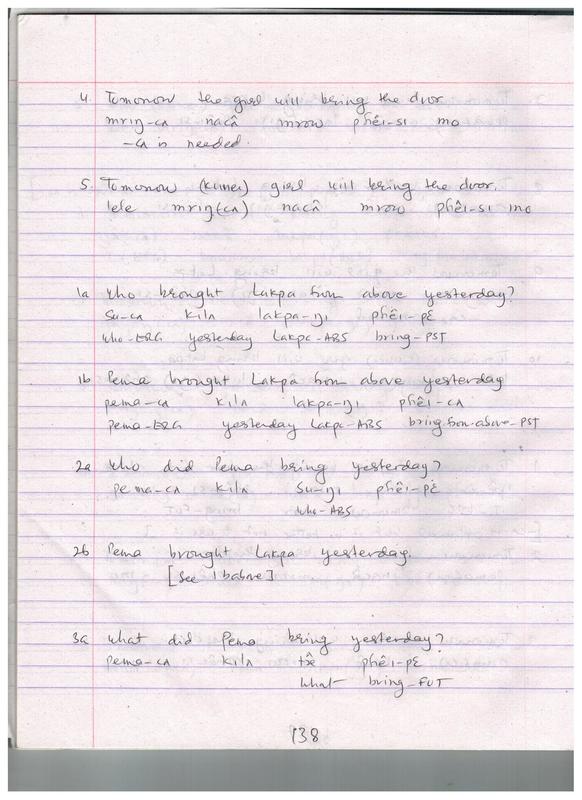 4. Tomorrow the girl will bring the door
mrıŋ-cʌ nacâ mrow phêi-si mo
-cʌ is needed.
5. Tomorrow girl will bring the door.
lele mrıŋ(cʌ) nacâ mrow phêi-si mo
1a Who brought Lakpa from above yesterday?
su-cʌ kilʌ lakpa-ŋı phêi-pɛ
who-ERG yesterday Lakpa-ABS bring-PST
1b Pema brought Lakpa from above yesterday
pema-cʌ kilʌ lakpa-ŋı phêi-cʌ
pema-ERG yesterday Lakpa-ABS bring.from.above-PST
2a Who did Pema bring yesterday?
pema-cʌ kilʌ su-ŋı phêi-pɛ
who-ABS
2b Pema brought Lakpa yesterday.
[See 1b above]
3a What did Pema bring yesterday?
pema-cʌ kilʌ phêi-pɛ
what bring-FUT
138